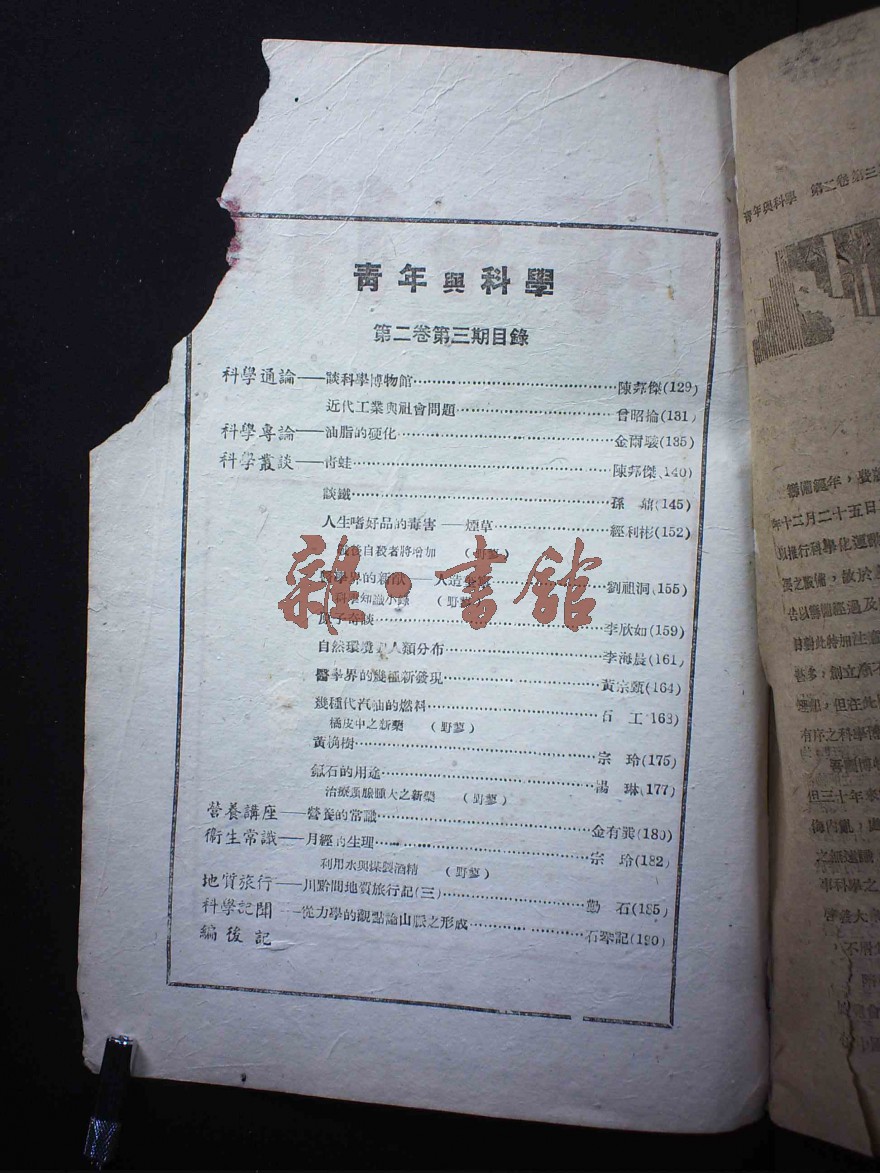 青年與科學
第二卷第三期目錄
科學通論——談科學博物館……陳邦傑(129)
近代工業與社會問題……曾昭掄(131)
科學專論——油脂的硬化……金爾駿(135)
科學叢談——青蛙……陳邦傑(140)
談鐵……孫 鼐(145)
人生嗜好品的毒害——煙草……經利彬(152)
自殺者將增加 (野蓼)
界的新 ——人造 ……劉祖洞(155)
科學知識小錄 (野蓼)
原子奇談……李欣如(159)
自然環境 人類分布……李海晨(161)
醫學界的幾種新發現……黃宗甄(164)
幾種代汽油的燃料……石 工(168)
橘皮中之新藥 (野蓼)
黃桷樹……宗 玲(175)
石的用途……湯 琳(177)
治療 腺腫大之新藥 (野蓼)
營養講座——營養的常識……金有巽(180)
衛生常識——月經的生理……宗 玲(182)
利用水與煤製酒精 (野蓼)
地質旅行——川黔間地質旅行記(三)……勤 石(185)
科學記聞——從力學的觀點論山脈之形成……石 記(190)
編後記
雜·書館
青年與科學 第二卷第三
籌備經年，
年十二月二十五日
以推行科學化運動
要之設備，故於
苦以籌備經過及
對此特加注意
甚多，創立
但在此
有序之科學博
但三十年來
事科學之